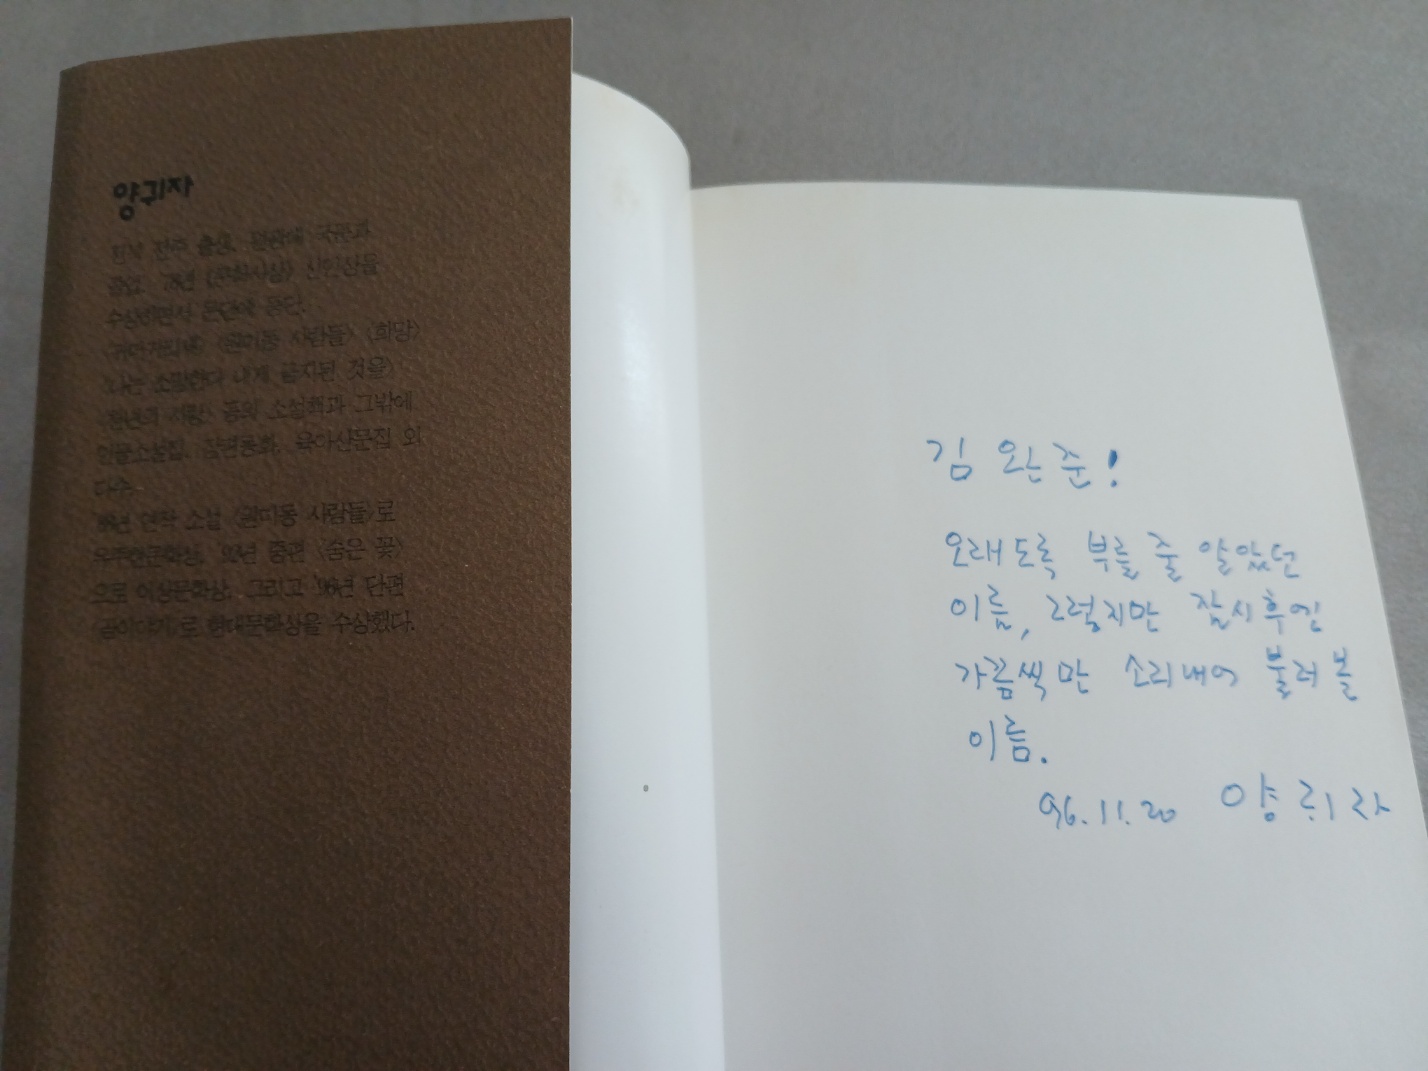 양귀자
전북 전주 출신. 원광대 국문과
졸업. 78년 〈문학사상〉 신인상을
수상하면서 문단에 등단.
〈원미동 사람들〉 〈희망〉
〈나는 소망한다 내게 금지된 것을〉
〈천년의 사랑〉 등의 소설책과 그밖에
인물소설집, 장편동화, 육아산문집 외
다수.
연작 소설 〈원미동 사람들〉로
유주현문학상, 92년 중편 〈숨은 꽃〉
으로 이상문학상, 그리고 '96년 단편
〈곰 이야기〉로 현대문학상을 수상했다.
김완준!
오래도록 부를 줄 알았던
이름, 그렇지만 잠시후엔
가끔씩만 소리내어 불러볼
이름.
96.11.20 양귀자